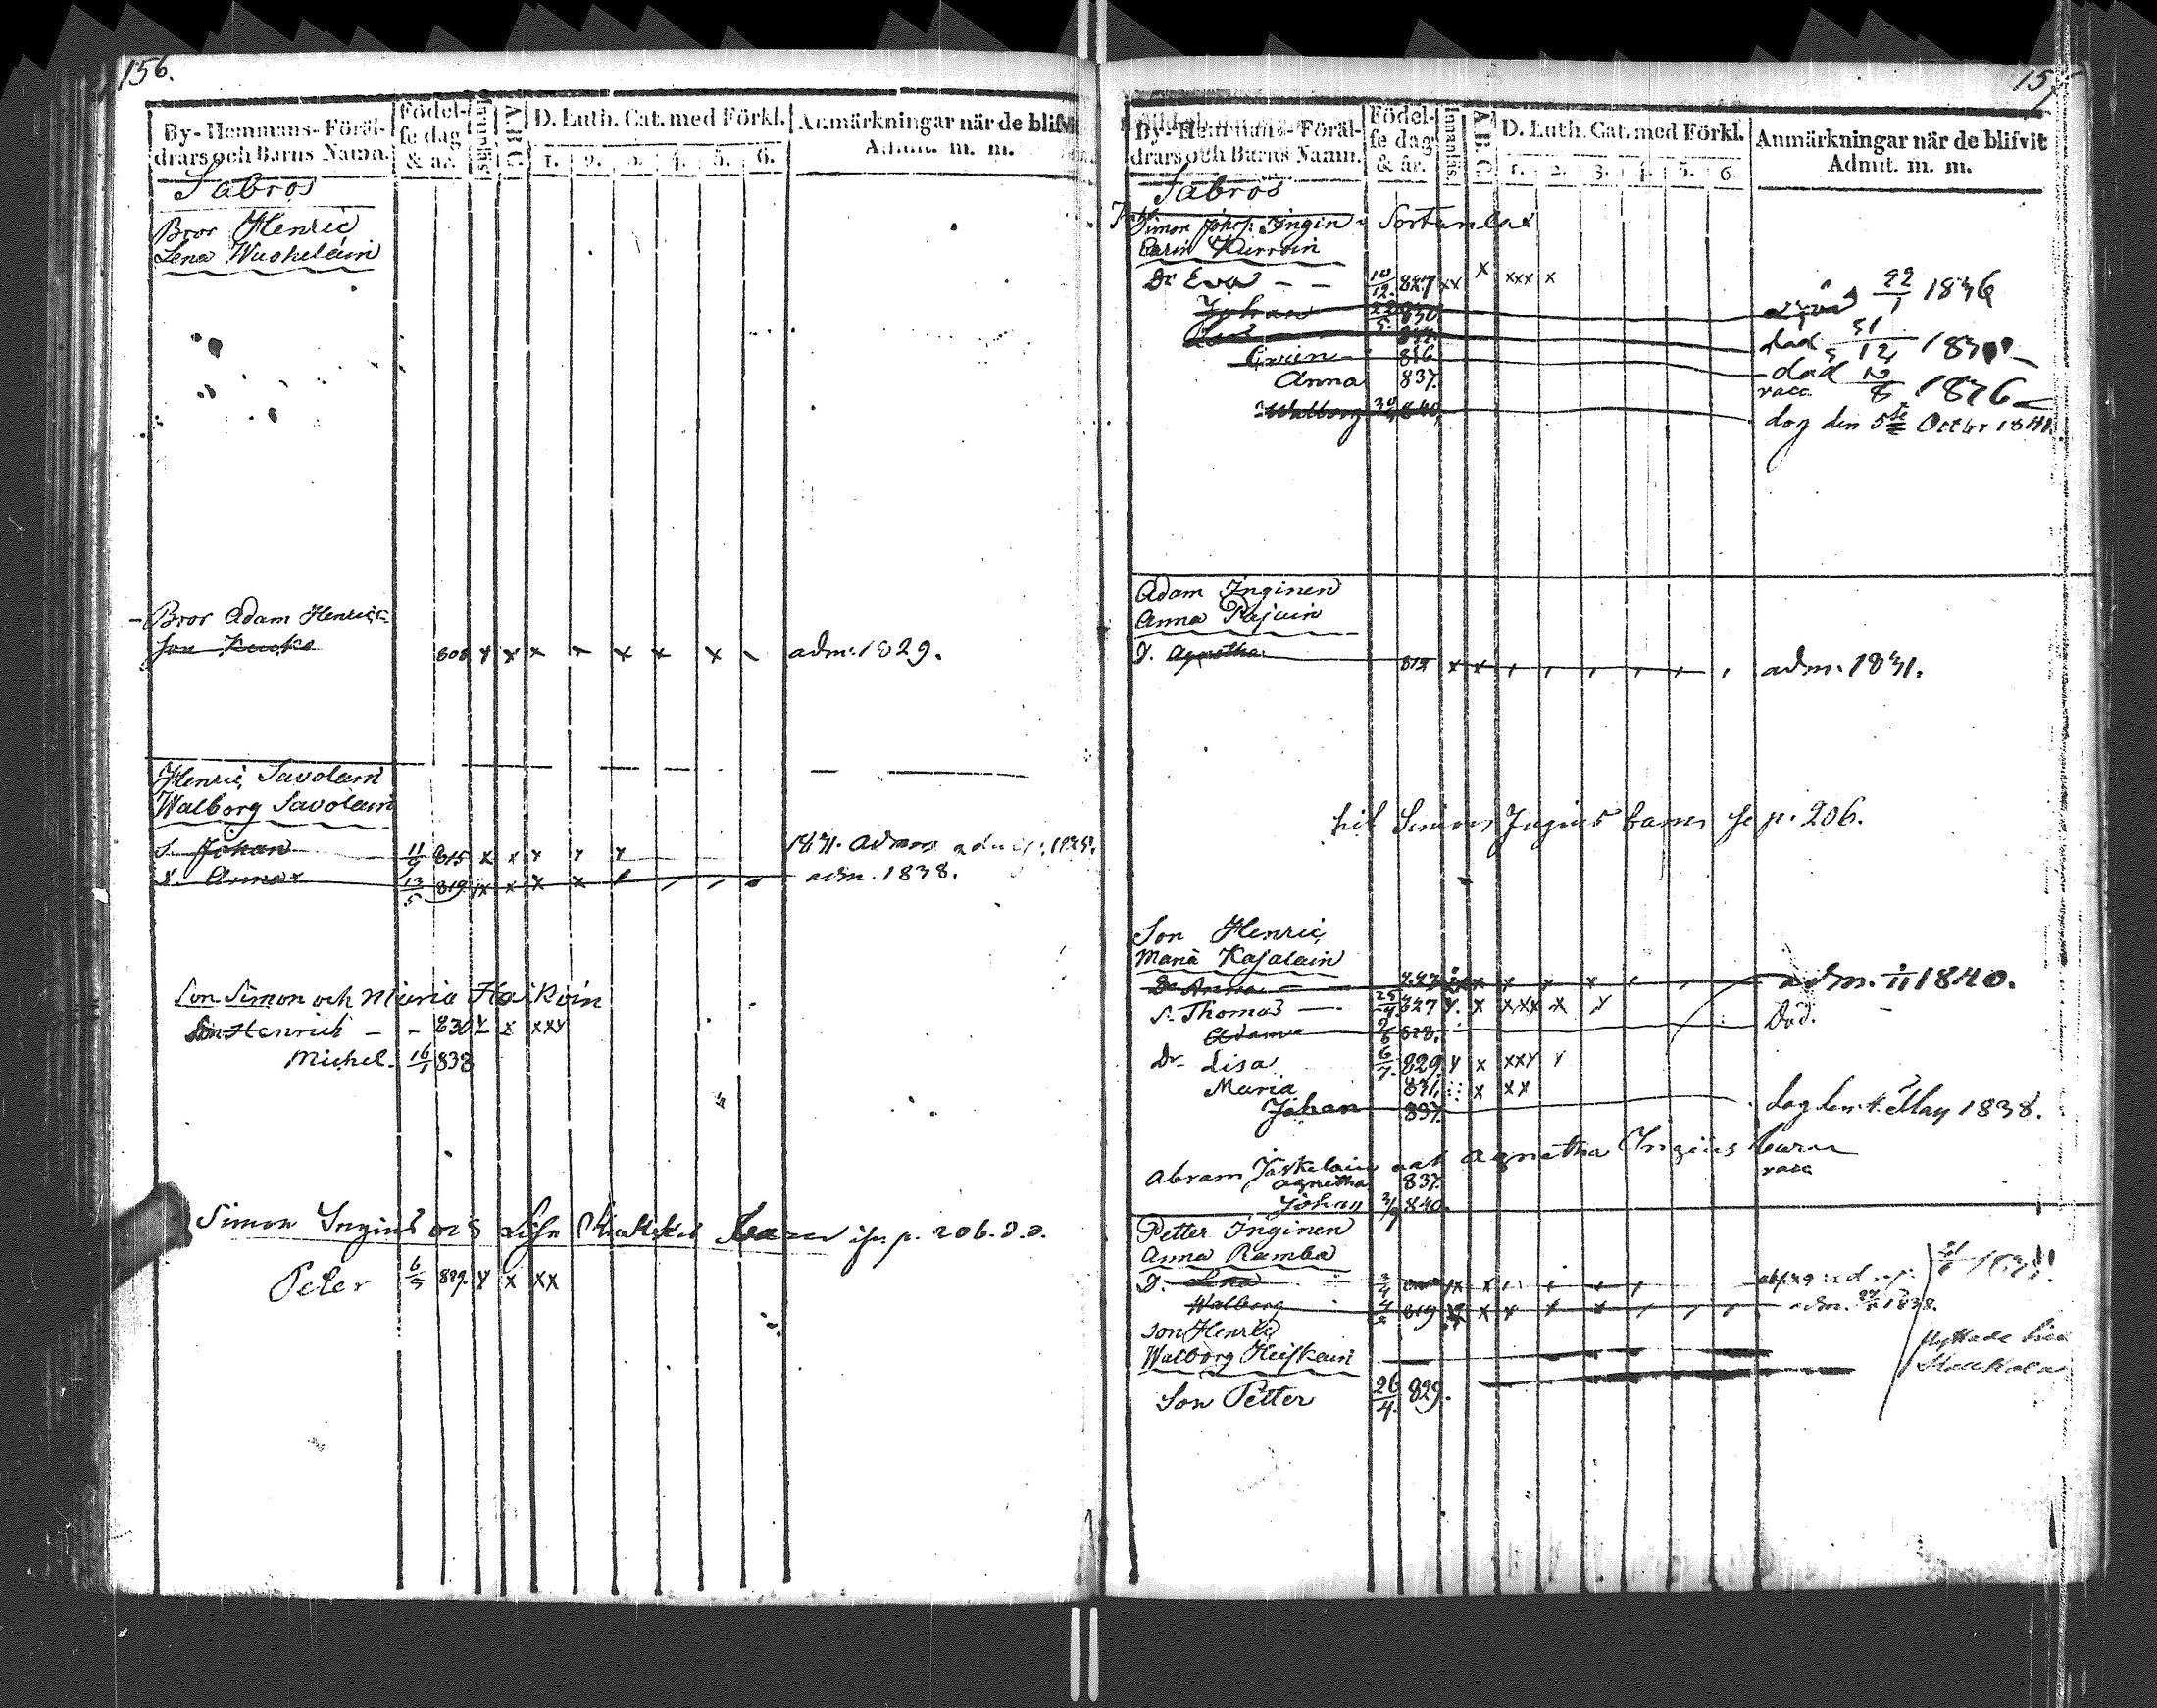 156.
By- Hemmans- Föräl-
drars och Barns Namn.
Födel-
se dag
& år.
Innanläs.
A.B.C.
D. Luth. Cat. med Förkl.
1. 2. 3. 4. 5. 6.
Anmärkningar när de blifvit
Admit. m. m.
Sabros
Bror Henric
Lena
Bror Adam Henrics
son 808 x x x x x x adm: 1829.
Henric Savolain
Walborg Savolain
S. Johan 11/9 815 x x x x x
D. Anna 13/5 819 x x x x adm. 1838.
Son Simon och Maria Haikoin
Son Henrich - - 830 x x xxx
Michel. 16/1 838
Simon Ingius och Lisa barn p. 206.
Peter 6/5 829. x x xx
157
By- Hemmans- Föräl-
drars och Barns Namn.
Födel-
se dag
& år.
Innanläs.
A.B.C.
D. Luth. Cat. med Förkl.
1. 2. 3. 4. 5. 6.
Anmärkningar när de blifvit
Admit. m. m.
Sabros
Simon Johs. Ingin i Sortanlax
Carin Hirvoin
Dr Eva - - 10/12. 827 xx x xxx x
Johan 830 22/1 1836
död 12
Carin 816 död 12/8 1836
Anna 837. vacc.
Walborg 840. dog den 5te Octbr 1841.
Adam Inginen
Anna Pajuin
D. Agnetha 812 x x adm. 1831.
Simon Ingius barn se p. 206.
Son Henric
Maria Kajalain
Dr Anna adm. 1/11 1840.
S. Thomas 25/4 827 x. x xxx x x
Adam 828. Död.
Dr Lisa 6/7. 829 x x xxx x
Maria 831. x xx
Johan 837. dog den 4 May 1838.
Abram Jäskelain och Agnetha Ingius barn
Agnetha 837. vacc
Johan 840.
Petter Inginen
Anna Ramba
D. Lena
Walborg 819 adm. 1838.
Son Henric
Walborg Heiskain
flyttade
Son Petter 26/4. 829.